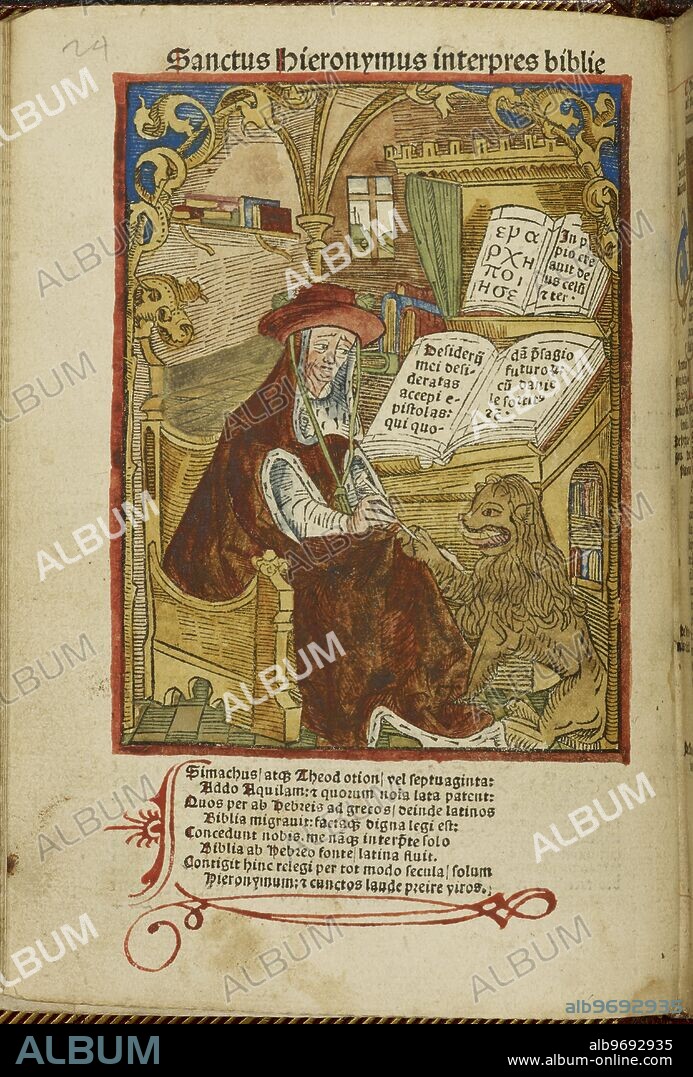 24
Sanctus Hieronymus interpres biblie
ερα
ρχη
ποι
ησε
In pⁱ
pio cre
auit de
us celū
⁊ ter.
Desiderij
mei desi-
deratas
accepi e-
pistolas:
qui quo-
dā p̄sagio
futuroꝝ
cū danie
le sortit⁹
⁊c̄.
Simachus/ atqꝫ Theodotion/ vel septuaginta:
Addo Aquilam: ⁊ quorum nota lata patent:
Quos per ab Hebreis ad grecos/ deinde latinos
Biblia migrauit: factaqꝫ digna legi est:
Concedunt nobis. me nāqꝫ interp̄te solo
Biblia ab Hebreo fonte/ latina fluit.
Contigit hinc relegi per tot modo secula/ solum
Hieronymum: ⁊ cunctos laude preire viros.
ALBUM
alb9692938
ALBUM
alb9692935
www.album-online.com